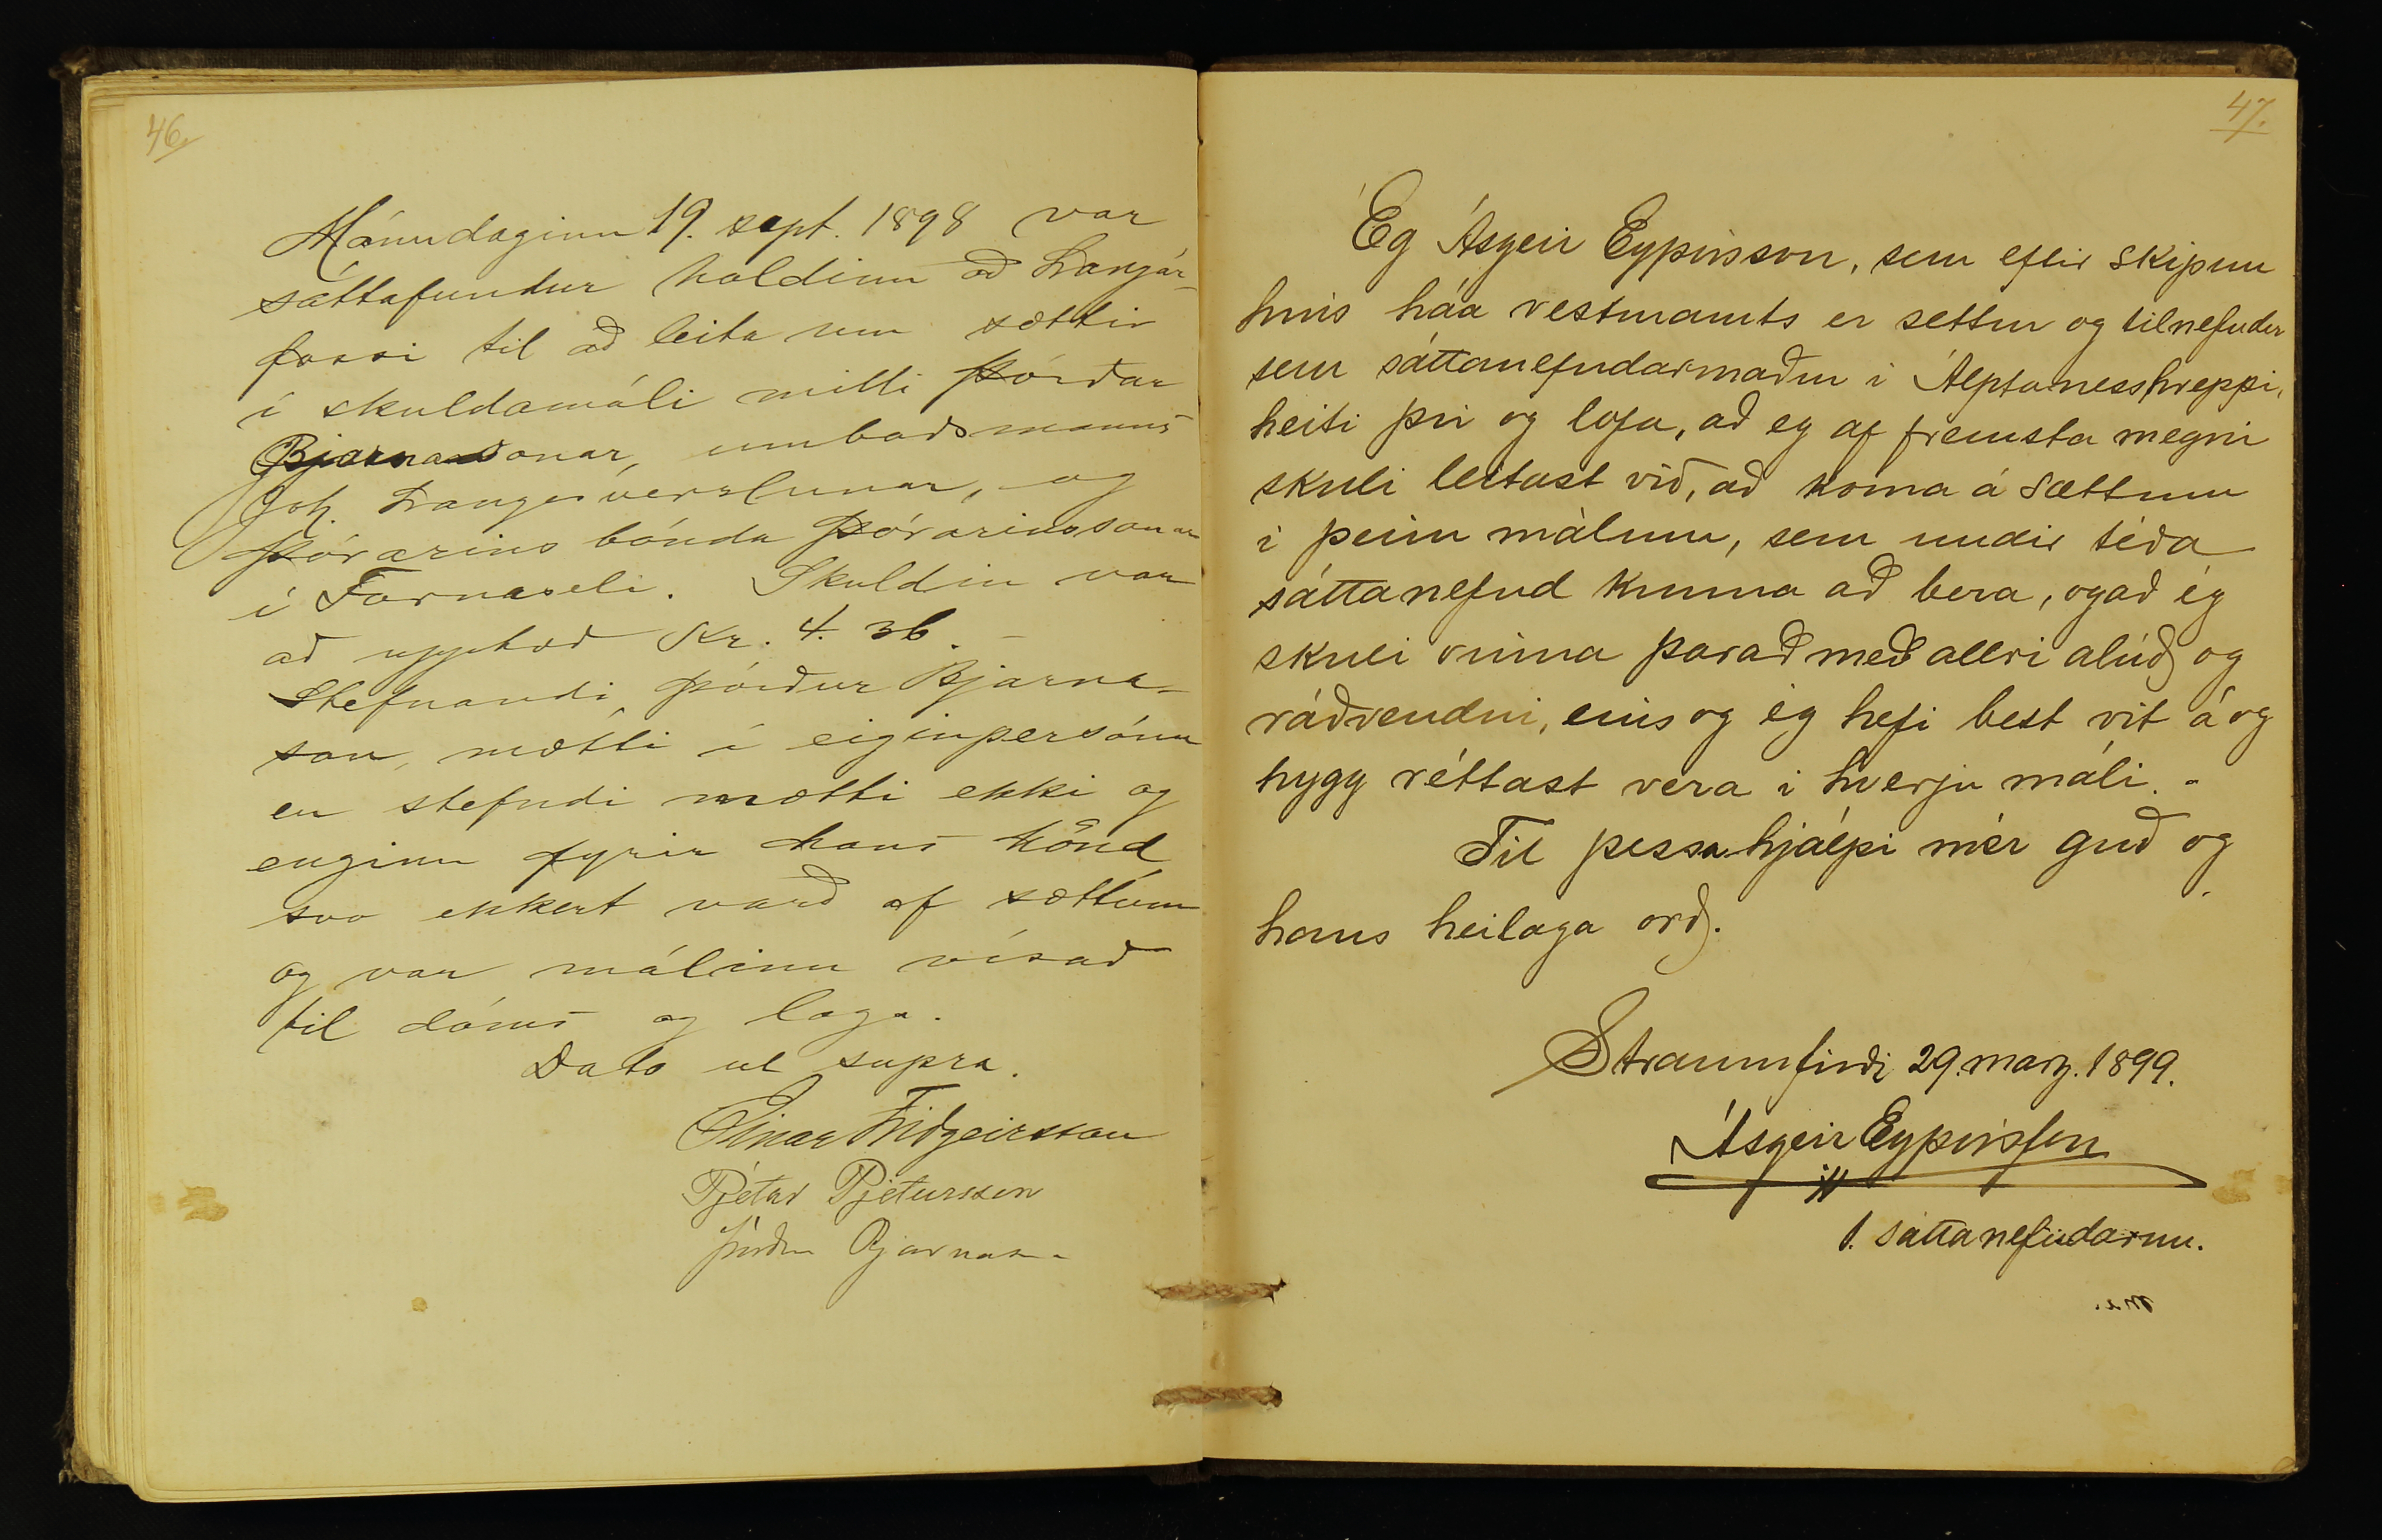 46.
Mánudaginn 19. sept. 1898 var
sáttafundur haldinn að Langár-
fossi til að leita um sættir
í skuldamáli milli Þórðar
Bjarnasonar, umboðsmanns
Joh. Langes verslunar, og
Þórarins bónda Þórarinssonar
í Fornaseli. Skuldin var
að upphæð Kr. 4. 36. -
Stefnandi Þórður Bjarna-
son, mætti í eiginpersónu
en stefndi mætti ekki og
enginn fyrir hans hönd
svo ekkert varð af sættum
og var málinu vísað
til dóms og laga.
Dato ut supra.
Einar Friðgeirsson
Pjetur Pjetursson
Þórður Bjarnason
47.
Ég Ásgeir Eyþórsson, sem eftir skipun
hins háa vesturamts er settur og tilnefndur
sem sáttanefndarmaður í Álptanesshreppi,
heiti því og lofa, að eg af fremsta megni
skuli leitast við, að koma á sættum
í þeim málum, sem undir téða
sáttanefnd kunna að bera, og að ég
skuli vinna þarað með allri alúð og
ráðvendni, eins og ég hefi best vit á og
hygg réttast vera í hverju máli. -
Til þessa hjálpi mér guð og
hans heilaga orð.
Straumfirði 29. marz. 1899.
Ásgeir Eyþórsson
1. sáttanefndarm.